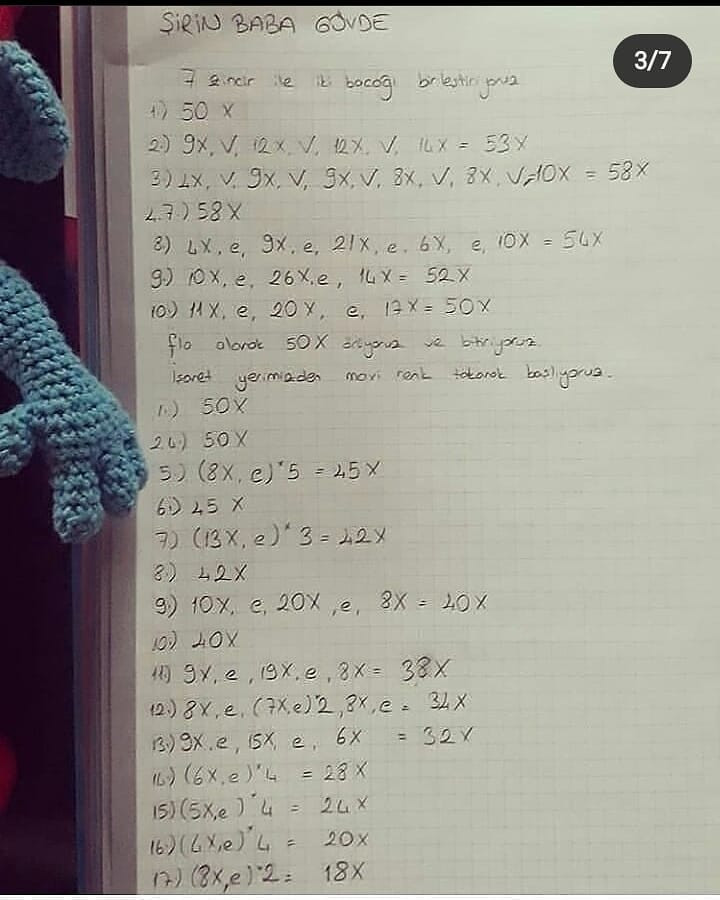 ŞİRİN BABA GÖVDE
3/7
7 zincir ile iki bacağı birleştiriyoruz
1.) 50 X
2.) 9X, V, 12X, V, 12X, V, 14X = 53X
3.) 4X, V, 9X, V, 9X, V, 8X, V, 8X, V, 10X = 58X
4.7.) 58X
8.) 4X, e, 9X, e, 21X, e, 6X, e, 10X = 54X
9.) 10X, e, 26X, e, 14X = 52X
10.) 11X, e, 20X, e, 17X = 50X
flo olarak 50X örüyoruz ve bitiriyoruz.
İşaret yerimizden mavi renk takarak başlıyoruz.
1.) 50X
2.4.) 50X
5.) (8X, e)*5 = 45X
6.) 45 X
7.) (13X, e)* 3 = 42X
8.) 42X
9.) 10X, e, 20X, e, 8X = 40X
10.) 40X
11.) 9X, e, 19X, e, 8X = 38X
12.) 8X, e, (7X, e)*2, 8X, e = 34X
13.) 9X, e, 15X, e, 6X = 32X
14.) (6X, e)*4 = 28X
15) (5X, e)*4 = 24X
16.) (4X, e)*4 = 20X
17.) (8X, e)*2 = 18X